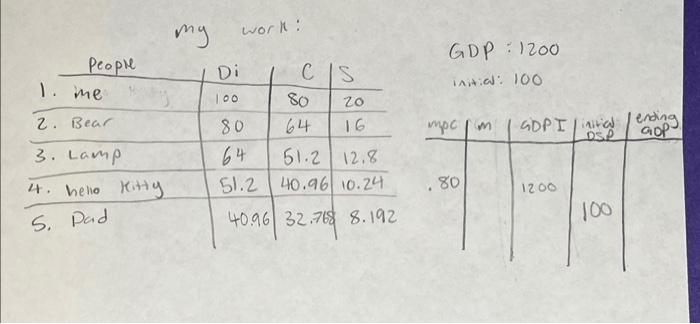 my work:
People Di C S
1. me 100 80 20
2. Bear 80 64 16
3. Lamp 64 51.2 12.8
4. hello Kitty 51.2 40.96 10.24
5. Dad 40.96 32.768 8.192
GDP : 1200
initial: 100
mpc m GDP I initial DSP ending GDP
.80 1200
100